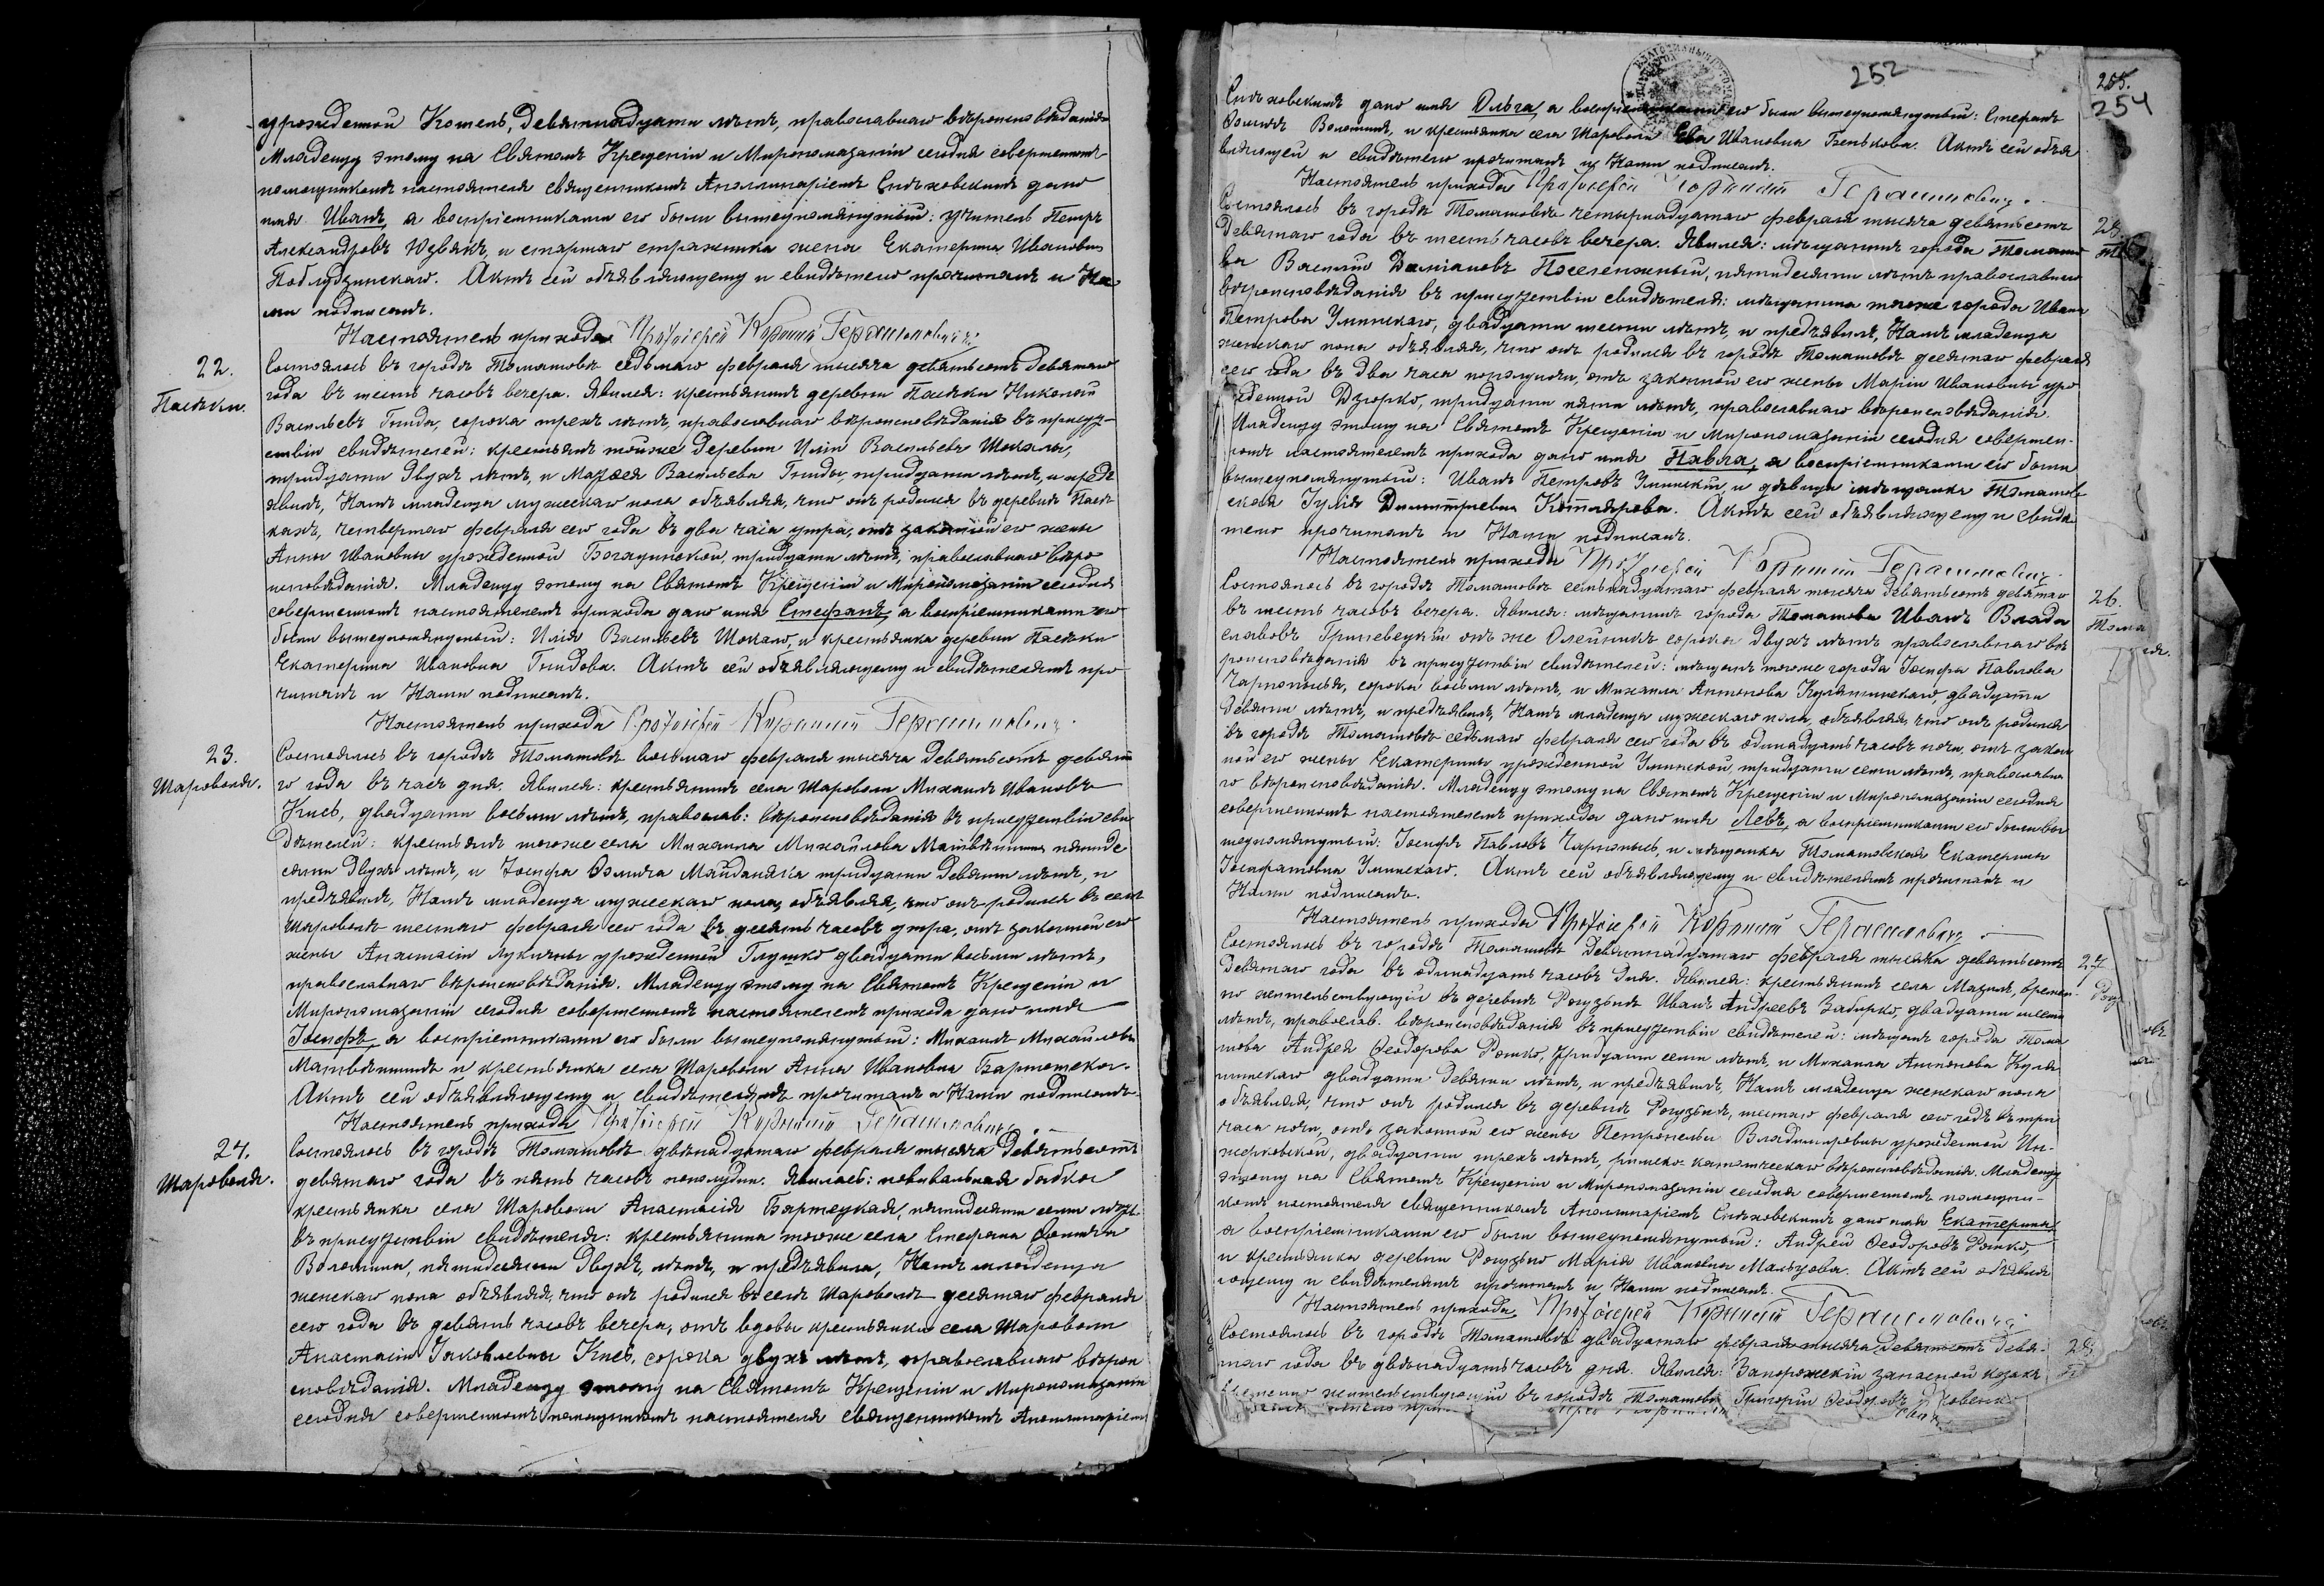 урожденной Котель, девятнадцати лѣтъ, православнаго вѣроисповѣданія.
Младенцу этому на Святомъ Крещеніи и Миропомазаніи сегодня совершенномъ
помощникомъ настоятеля священникомъ Аполлинаріемъ Снѣховскимъ дано
имя Иванъ, а воспріемниками его были вышеупомянутый: учитель Петръ
Александровъ, и старшаго стражника жена Екатерина Ивановна
Акмъ сей объявляющему и свидѣтелю прочитанъ и На
ми подписанъ.
Настоятель прихода Протоіерей Корнилій Герасимовичъ
22.
Пасѣки.
Состоялось въ городѣ Томашовѣ седьмаго февраля тысяча девятьсотъ девятаго
года въ шесть часовъ вечера. Явился: крестьянинъ деревни Пасѣки Никифоръ
Васильевъ Гнида, сорока трехъ лѣтъ, православнаго вѣроисповѣданія въ присут-
ствіи свидѣтелей: крестьянъ тойже деревни Иліи Васильева Шокало,
тридцати двухъ лѣтъ, и Мазфея Васильева Гниды, тридцати лѣтъ, и предъ
явилъ Намъ младенца мужескаго пола объявляя, что онъ родился въ деревнѣ Пасѣ-
кахъ, четвертаго февраля сего года въ два часа утра, отъ законной его жены
Анны Ивановны урожденной, тридцати лѣтъ, православнаго вѣро
исповѣданія. Младенцу этому на Святомъ Крещеніи и Миропомазаніи сегодня
совершенномъ настоятелемъ прихода дано имя Стефанъ, а воспріемниками его
были вышеупомянутый: Илія Васильевъ Шокало, и крестьянка деревни Пасѣки
Екатерина Ивановна Гнидова. Актъ сей объявляющему и свидѣтелямъ про
читанъ и Нами подписанъ.
Настоятель прихода Протоіерей Корнилій Герасимовичъ
23.
Шароволя.
Состоялось въ городѣ Томашовѣ восьмаго февраля тысяча девятьсотъ девята
го года въ часъ дня. Явился: крестьянинъ села Шароволи Михаилъ Ивановъ
Кись, двадцати восьми лѣтъ, православ: вѣроисповѣданія въ присутствіи сви
дѣтелей: крестьянъ тогоже села Михаила Михайлова пятиде
сяти двухъ лѣтъ, и Іосифа Майданяка тридцати девяти лѣтъ, и
предъявилъ Намъ младенца мужескаго пола, объявляя, что онъ родился въ селѣ
Шароволѣ шестаго февраля сего года въ десять часовъ утра, отъ законной его
жены Анастасіи Лукичны урожденной Глушко двадцати восьми лѣтъ,
православнаго вѣроисповѣданія. Младенцу этому на Святомъ Крещеніи и
Миропомазаніи сегодня совершенномъ настоятелемъ прихода дано имя
Іосифъ, а воспріемниками его были вышеупомянутый: Михаилъ Михайловъ
и крестьянка села Шароволи Анна Ивановна
Актъ сей объявляющему и свидѣтелямъ прочитанъ и Нами подписанъ.
Настоятель прихода Протоіерей Корнилій Герасимовичъ
24.
Шароволя.
Состоялось въ городѣ Томашовѣ двѣнадцатаго февраля тысяча девятьсотъ
девятаго года въ пять часовъ пополудни. Явилась: повивальная бабка
крестьянка села Шароволи Анастасія Бартецкая, пятидесяти семи лѣтъ
въ присутствіи свидѣтеля: крестьянина тогоже села Стефана Фомича
Волошина, пятидесяти двухъ лѣтъ, и предъявила, Намъ младенца
женскаго пола объявляя, что онъ родился въ селѣ Шароволѣ десятаго февраля
сего года въ девять часовъ вечера, отъ вдовы крестьянки села Шароволи
Анастасіи Іаковлевны Кись, сорока двухъ лѣтъ, православнаго вѣрои
сповѣданія. Младенцу этому на Святомъ Крещеніи и Миропомазаніи
сегодня совершенномъ помощникомъ настоятеля священникомъ Аполлинаріемъ
252
255.
254
Снѣховскимъ дано имя Ольга, а воспріемниками его были вышеупомянутый: Стефанъ
Фомичъ Волошинъ, и крестьянка села Шароволи Ева Ивановна Бенькова. Актъ сей объя
вляющей и свидѣтелю прочитанъ и Нами подписанъ.
Настоятель прихода Протоіерей Корнилій Герасимовичъ
25.
Состоялось въ городѣ Томашовѣ четырнадцатаго февраля тысяча девятьсотъ
девятаго года въ шесть часовъ вечера. Явился: мѣщанинъ города Томашо
ва Василій Даміановъ, пятидесяти лѣтъ православнаго
вѣроисповѣданія въ присутствіи свидѣтеля: мѣщанина тогоже города Ивана
Петрова Улинскаго, двадцати шести лѣтъ, и предъявилъ, Намъ младенца
женскаго пола объявляя, что онъ родился въ городѣ Томашовѣ десятаго февраля
сего года въ два часа пополуночи, отъ законной его жены Маріи Ивановны уро
жденной Дзюрко, тридцати пяти лѣтъ, православнаго вѣроисповѣданія.
Младенцу этому на Святомъ Крещеніи и Миропомазаніи сегодня совершен-
номъ настоятелемъ прихода дано имя Павла, а воспріемниками его были
вышеупомянутый: Иванъ Петровъ Улинскій, и дѣвица мѣщанка Томашов
ская Іулія Димитріевна Котлярова. Актъ сей объявляющему и свидѣ
телю прочитанъ и Нами подписанъ.
Настоятель прихода Протоіерей Корнилій Герасимовичъ
26.
Тома
Состоялось въ городѣ Томашовѣ семнадцатаго февраля тысяча девятьсотъ девятаго
въ шесть часовъ вечера. Явился: мѣщанинъ города Томашова Иванъ Влади
славовъ Гриневецкій онъ же Олейникъ сорока двухъ лѣтъ православнаго вѣ
роисповѣданія въ присутствіи свидѣтелей: мѣщанъ тогоже города Іосифа Павлова
Чарнопыся, сорока восьми лѣтъ, и Михаила Антонова Кулятинскаго, двадцати
девяти лѣтъ, и предъявилъ, Намъ младенца мужескаго пола, объявляя, что онъ родился
въ городѣ Томашовѣ седьмаго февраля сего года въ одинадцать часовъ ночи, отъ закон
ной его жены Екатерины урожденной Улинской, тридцати семи лѣтъ, православна
го вѣроисповѣданія. Младенцу этому на Святомъ Крещеніи и Миропомазаніи сегодня
совершенномъ настоятелемъ прихода дано имя Левъ, а воспріемниками его были вы
шеупомянутый: Іосифъ Павловъ Чарнопысь, и мѣщанка Томашовская Екатерина
Іосафатовна Улинскаго. Актъ сей объявляющему и свидѣтелямъ прочитанъ и
Нами подписанъ.
Настоятель прихода Протоіерей Корнилій Герасимовичъ
27
Состоялось въ городѣ Томашовѣ девятнадцатаго февраля тысяча девятьсотъ
девятаго года въ одинадцать часовъ дня. Явился: крестьянинъ села Мазилъ, времен-
но жительствующій въ деревнѣ Рогузьнѣ Иванъ Андреевъ Забирко, двадцати шести
лѣтъ, православ. вѣроисповѣданія въ присутствіи свидѣтелей: мѣщанъ города Тома
шова Андрея Ѳеодорова Рошко, тридцати семи лѣтъ, и Михаила Антонова Куля
тинскаго двадцати девяти лѣтъ, и предъявилъ, Намъ младенца женскаго пола
объявляя, что онъ родился въ деревнѣ Рогузьнѣ, шестаго февраля сего года въ три
часа ночи, отъ законной его жены Петронели Владимировны урожденной Ин-
жерковской, двадцати трехъ лѣтъ, римско-католическаго вѣроисповѣданія. Младенцу
этому на Святомъ Крещеніи и Миропомазаніи сегодня совершенномъ помощни-
комъ настоятеля священникомъ Аполлинаріемъ Снѣховскимъ дано имя Екатерина
а воспріемниками его были вышеупомянутый: Андрей Ѳеодоровъ Рошко,
и крестьянка деревни Рогузьно Марія Ивановна Мальцова. Актъ сей объявля
ющему и свидѣтелямъ прочитанъ и Нами подписанъ.
Настоятель прихода Протоіерей Корнилій Герасимовичъ
28.
Состоялось въ городѣ Томашовѣ двадцатаго февраля тысяча девятьсотъ девя-
таго года въ двѣнадцать часовъ дня. Явился: Запорожскій запасной козакъ
временно жительствующій въ городѣ Томашовѣ Григорій Ѳеодоровъ